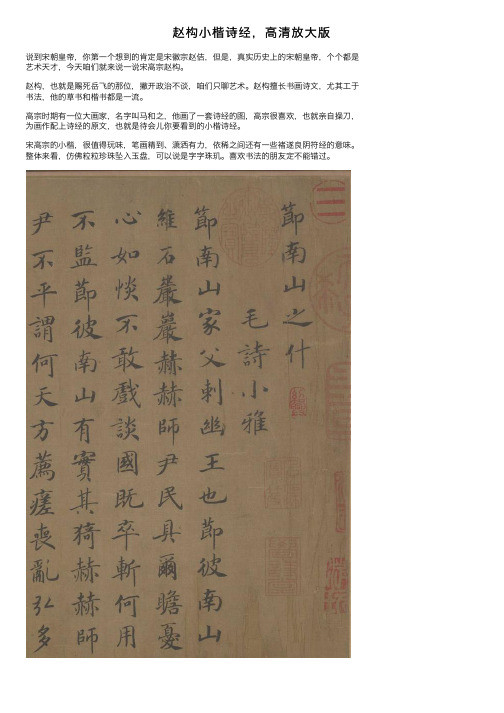 赵构小楷诗经，高清放大版
说到宋朝皇帝，你第一个想到的肯定是宋徽宗赵佶，但是，真实历史上的宋朝皇帝，个个都是
艺术天才，今天咱们就来说一说宋高宗赵构。
赵构，也就是赐死岳飞的那位，撇开政治不谈，咱们只聊艺术。赵构擅长书画诗文，尤其工于
书法，他的草书和楷书都是一流。
高宗时期有一位大画家，名字叫马和之，他画了一套诗经的图，高宗很喜欢，也就亲自操刀，
为画作配上诗经的原文，也就是待会儿你要看到的小楷诗经。
宋高宗的小楷，很值得玩味，笔画精到、潇洒有力，依稀之间还有一些褚遂良阴符经的意味。
整体来看，仿佛粒粒珍珠坠入玉盘，可以说是字字珠玑。喜欢书法的朋友定不能错过。
節南山之什
毛詩小雅
節南山家父刺幽王也節彼南山
維石巖巖赫赫師尹民具爾瞻憂
心如惔不敢戲談國既卒斬何用
不監節彼南山有實其猗赫赫師
尹不平謂何天方薦瘥喪亂弘多